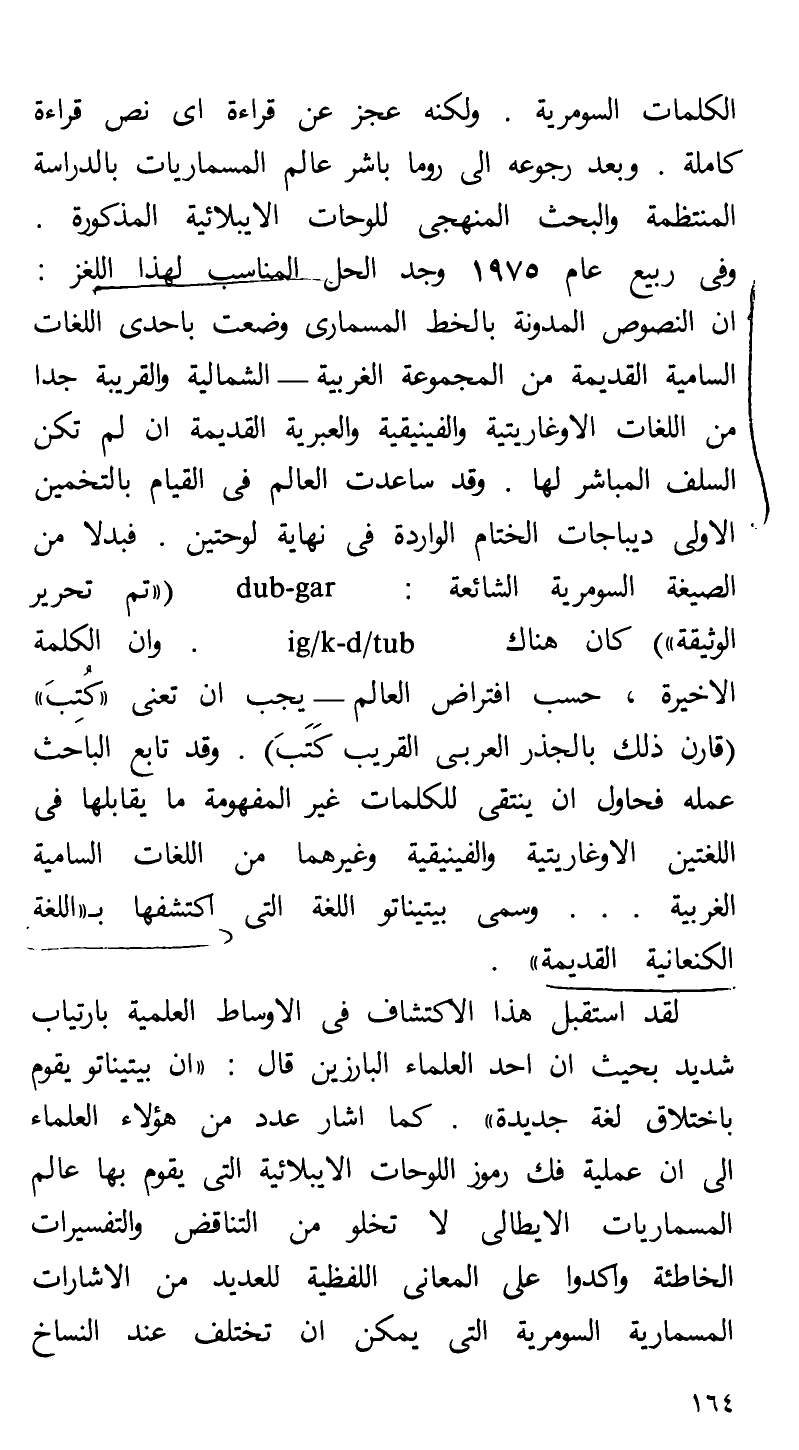 الكلمات السومرية . ولكنه عجز عن قراءة اى نص قراءة
كاملة . وبعد رجوعه الى روما باشر عالم المسماريات بالدراسة
المنتظمة والبحث المنهجى للوحات الايبلائية المذكورة .
وفى ربيع عام ١٩٧٥ وجد الحل المناسب لهذا اللغز :
ان النصوص المدونة بالخط المسمارى وضعت باحدى اللغات
السامية القديمة من المجموعة الغربية — الشمالية والقريبة جدا
من اللغات الاوغاريتية والفينيقية والعبرية القديمة ان لم تكن
السلف المباشر لها . وقد ساعدت العالم فى القيام بالتخمين
الاولى ديباجات الختام الواردة فى نهاية لوحتين . فبدلا من
الصيغة السومرية الشائعة : dub-gar («تم تحرير
الوثيقة») كان هناك ig/k-d/tub . وان الكلمة
الاخيرة ، حسب افتراض العالم — يجب ان تعنى «كُتِبَ»
(قارن ذلك بالجذر العربى القريب كَتَبَ) . وقد تابع الباحث
عمله فحاول ان ينتقى للكلمات غير المفهومة ما يقابلها فى
اللغتين الاوغاريتية والفينيقية وغيرهما من اللغات السامية
الغربية . . . وسمى بيتيناتو اللغة التى اكتشفها بـ«اللغة
الكنعانية القديمة» .
لقد استقبل هذا الاكتشاف فى الاوساط العلمية بارتياب
شديد بحيث ان احد العلماء البارزين قال : «ان بيتيناتو يقوم
باختلاق لغة جديدة» . كما اشار عدد من هؤلاء العلماء
الى ان عملية فك رموز اللوحات الايبلائية التى يقوم بها عالم
المسماريات الايطالى لا تخلو من التناقض والتفسيرات
الخاطئة واكدوا على المعانى اللفظية للعديد من الاشارات
المسمارية السومرية التى يمكن ان تختلف عند النساخ
١٦٤